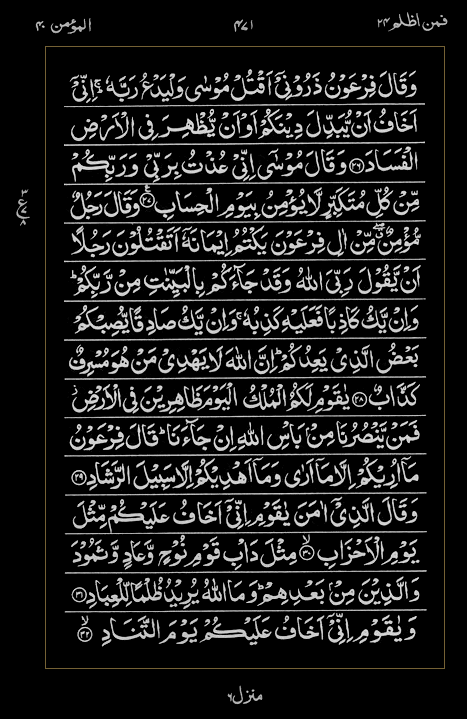 فمن اظلم ۲۴ ۴۷۱ المؤمن ۴۰
وَقَالَ فِرْعَوْنُ ذَرُوْنِیْۤ اَقْتُلْ مُوْسٰى وَلْیَدْعُ رَبَّهٗ ۚ اِنِّیْۤ
اَخَافُ اَنْ یُّبَدِّلَ دِیْنَكُمْ اَوْ اَنْ یُّظْهِرَ فِی الْاَرْضِ
الْفَسَادَ ﴿۲۶﴾ وَقَالَ مُوْسٰۤى اِنِّیْ عُذْتُ بِرَبِّیْ وَرَبِّكُمْ
مِّنْ كُلِّ مُتَكَبِّرٍ لَّا یُؤْمِنُ بِیَوْمِ الْحِسَابِ ﴿۲۷﴾ وَقَالَ رَجُلٌ
مُّؤْمِنٌ ۖ مِّنْ اٰلِ فِرْعَوْنَ یَكْتُمُ اِیْمَانَهٗۤ اَتَقْتُلُوْنَ رَجُلًا
اَنْ یَّقُوْلَ رَبِّیَ اللّٰهُ وَقَدْ جَآءَكُمْ بِالْبَیِّنٰتِ مِنْ رَّبِّكُمْ ؕ
وَاِنْ یَّكُ كَاذِبًا فَعَلَیْهِ كَذِبُهٗ ۚ وَاِنْ یَّكُ صَادِقًا یُّصِبْكُمْ
بَعْضُ الَّذِیْ یَعِدُكُمْ ؕ اِنَّ اللّٰهَ لَا یَهْدِیْ مَنْ هُوَ مُسْرِفٌ
كَذَّابٌ ﴿۲۸﴾ یٰقَوْمِ لَكُمُ الْمُلْكُ الْیَوْمَ ظَاهِرِیْنَ فِی الْاَرْضِ ؗ
فَمَنْ یَّنْصُرُنَا مِنْۢ بَاْسِ اللّٰهِ اِنْ جَآءَنَا ؕ قَالَ فِرْعَوْنُ
مَاۤ اُرِیْكُمْ اِلَّا مَاۤ اَرٰى وَمَاۤ اَهْدِیْكُمْ اِلَّا سَبِیْلَ الرَّشَادِ ﴿۲۹﴾
وَقَالَ الَّذِیْۤ اٰمَنَ یٰقَوْمِ اِنِّیْۤ اَخَافُ عَلَیْكُمْ مِّثْلَ
یَوْمِ الْاَحْزَابِ ﴿۳۰﴾ۙ مِثْلَ دَاْبِ قَوْمِ نُوْحٍ وَّعَادٍ وَّثَمُوْدَ
وَالَّذِیْنَ مِنْۢ بَعْدِهِمْ ؕ وَمَا اللّٰهُ یُرِیْدُ ظُلْمًا لِّلْعِبَادِ ﴿۳۱﴾
وَیٰقَوْمِ اِنِّیْۤ اَخَافُ عَلَیْكُمْ یَوْمَ التَّنَادِ ﴿۳۲﴾ۙ
منزل ۶
۳
ع
۷
۸